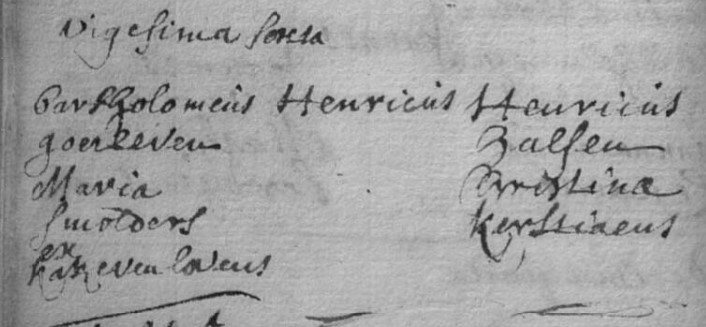 Vigesima sexta
Bartholomeus Henricus Henricus
goerleven Zalsen
Maria Cristina
Smolders Kerstiaens
ex